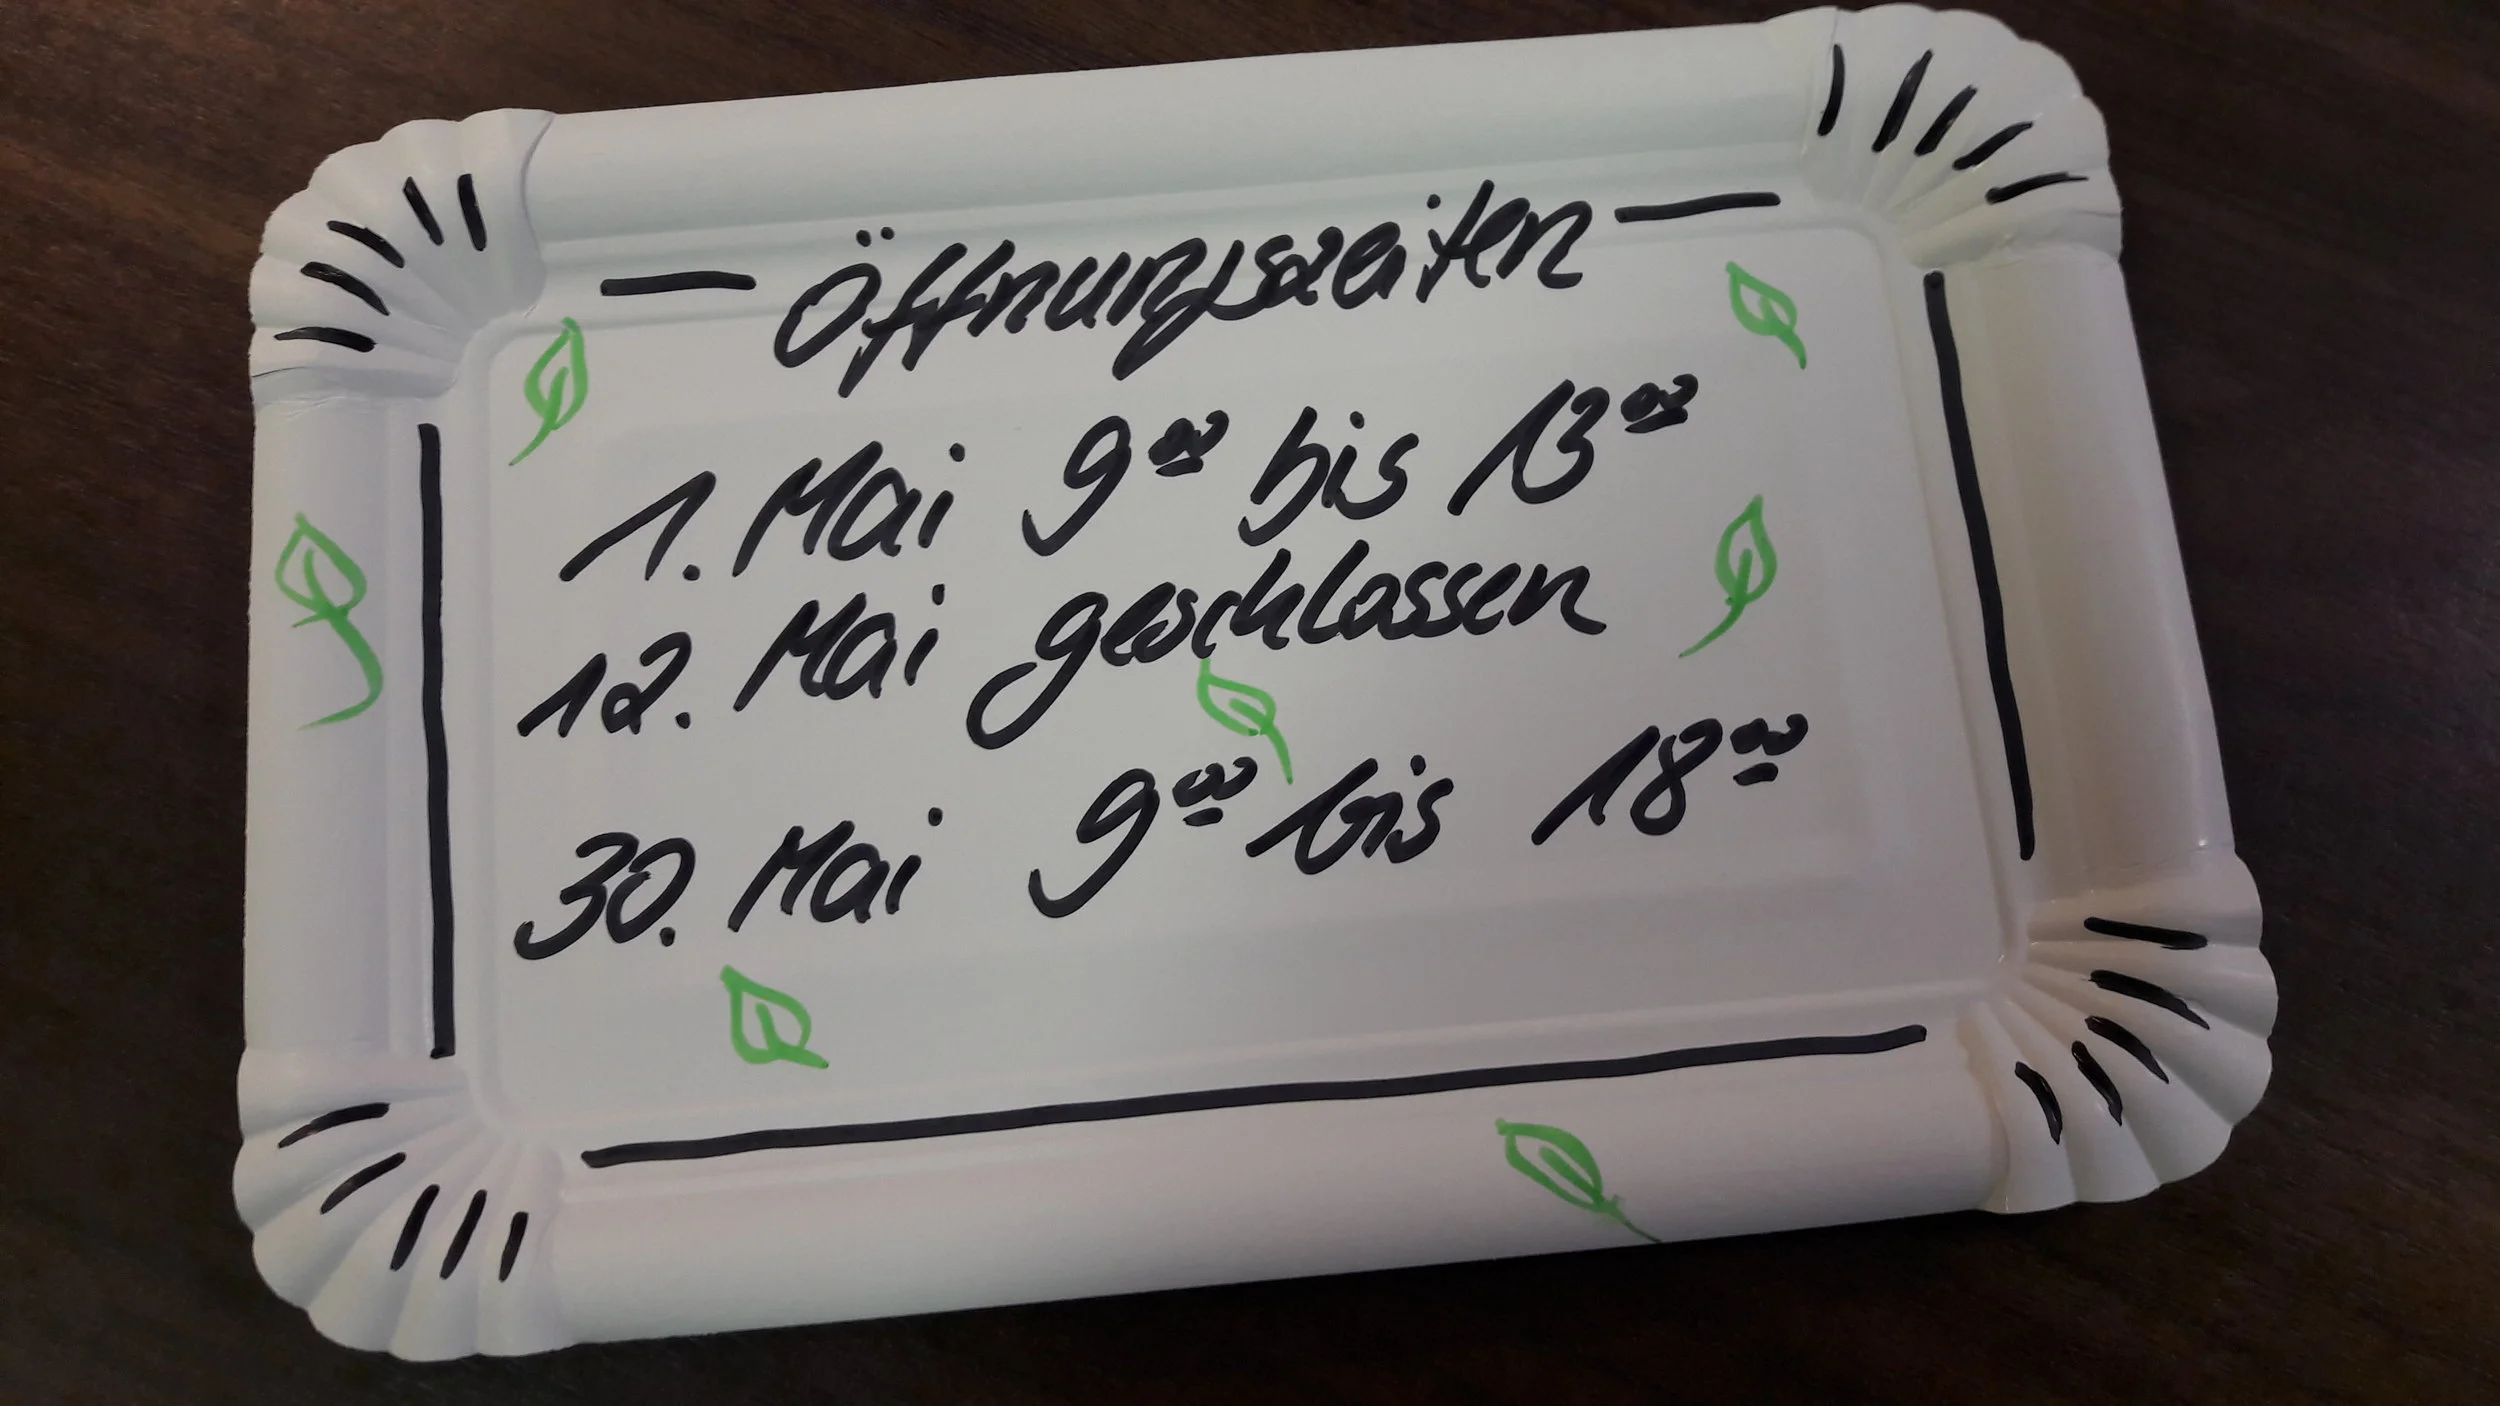 Öffnungszeiten
1. Mai 9⁰⁰ bis 13⁰⁰
12. Mai geschlossen
30. Mai 9⁰⁰ bis 18⁰⁰